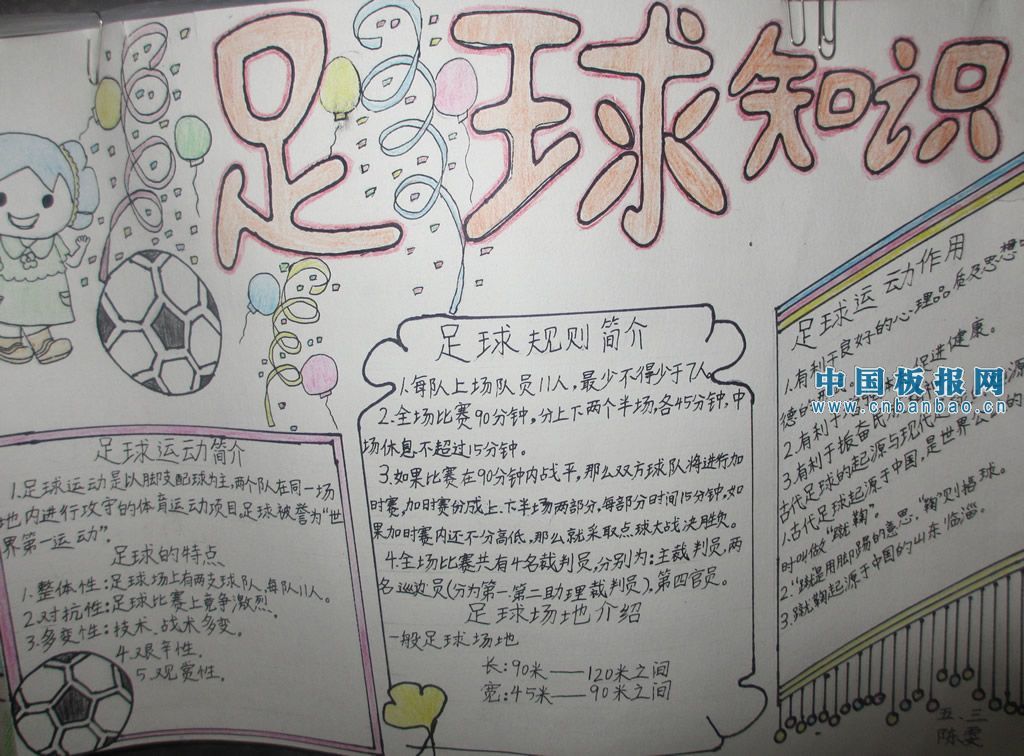 足球知识
足球运动简介
1.足球运动是以脚支配球为主,两个队在同一场
地内进行攻守的体育运动项目足球被誉为“世
界第一运动”。
足球的特点
1.整体性:足球场上有两支球队、每队11人。
2.对抗性:足球比赛上竞争激烈.
3.多变性:技术、战术多变。
4.艰辛性.
5.观赏性.
足球规则简介
1.每队上场队员11人,最少不得少于7人。
2.全场比赛90分钟,分上下两个半场,各45分钟,中
场休息不超过15分钟。
3.如果比赛在90分钟内战平,那么双方球队将进行加
时赛,加时赛份成上、下半场两部分,每部分时间15分钟,如
果加时赛内还不分高低,那么就采取点球大战决胜负。
4.全场比赛共有4名裁判员,分别为:主裁判员,两
名巡边员(分为第一.第二助理裁判员),第四官员。
足球场地介绍
一般足球场地
长:90米——120米之间
宽:45米——90米之间
足球运动作用
1.有利于良好的心理品质及思想
德的
2.有利于 促进健康。
3.有利于振奋民
古代足球的起源与现代足 源
1.古代足球起源于中国,是世界公 的
时叫做“蹴鞠”。
2.“蹴是用脚踢的意思,“鞠”则指球。
3.蹴鞠起源于中国的山东临淄。
中国板报网
www.cnbanbao.cn
五.三
陈雯